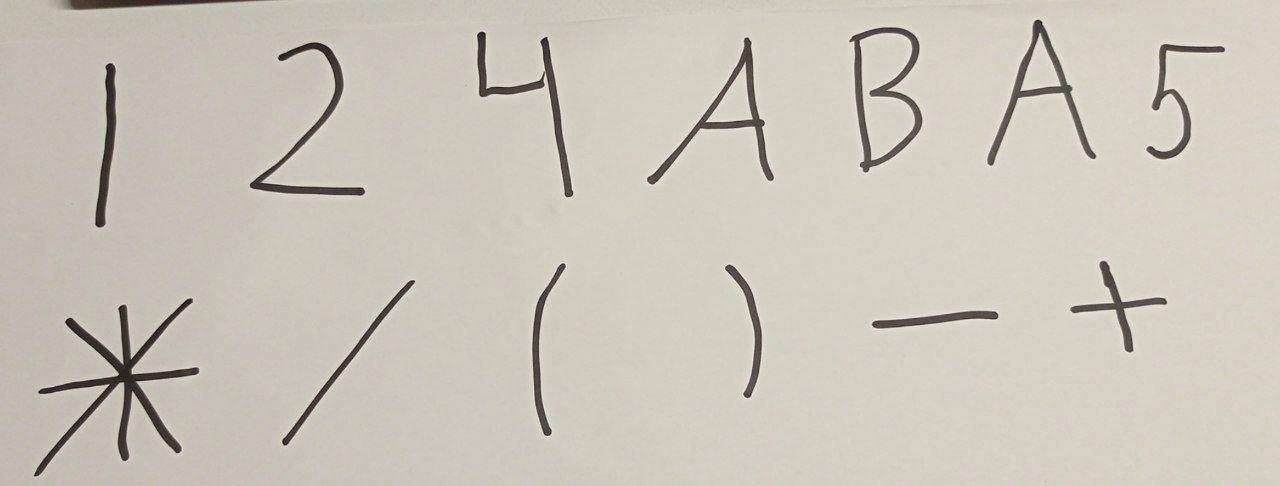 1 2 4 A B A 5
* / ( ) - +